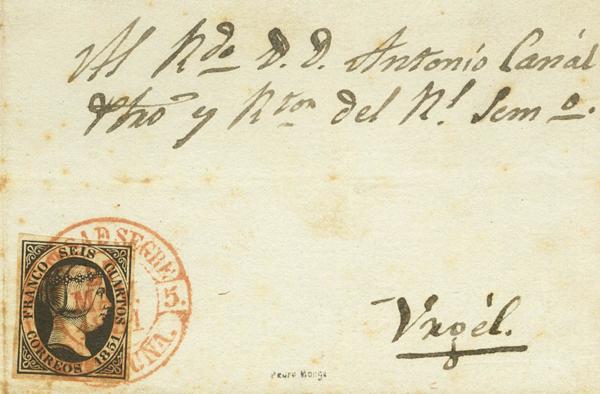 Al Rdo D. D. Antonio Canál
Pbro y Rtor del Rl. Semo.
FRANCO SEIS CUARTOS
CORREOS 1851
SEGRE. 5.
Urgél.
Pedro Monge